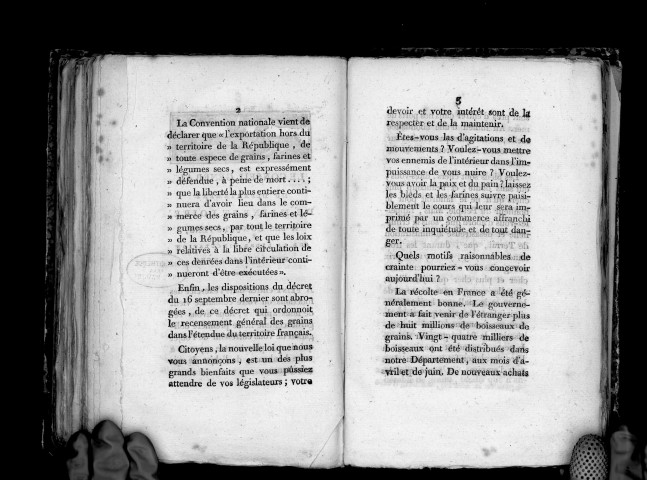 2
La Convention nationale vient de
déclarer que « l'exportation hors du
» territoire de la République, de
» toute espece de grains, farines et
» légumes secs, est expressément
» défendue, à peine de mort....;
» que la liberté la plus entiere conti-
» nuera d'avoir lieu dans le com-
» merce des grains, farines et lé-
» gumes secs, par tout le territoire
» de la République, et que les loix
» relatives à la libre circulation de
» ces denrées dans l'intérieur conti-
» nueront d'être exécutées ».
Enfin, les dispositions du décret
du 16 septembre dernier sont abro-
gées, de ce décret qui ordonnoit
le recensement général des grains
dans l'étendue du territoire français.
Citoyens, la nouvelle loi que nous
vous annonçons, est un des plus
grands bienfaits que vous pussiez
attendre de vos législateurs; votre
3
devoir et votre intérêt sont de la
respecter et de la maintenir.
Êtes-vous las d'agitations et de
mouvements? Voulez-vous mettre
vos ennemis de l'intérieur dans l'im-
puissance de vous nuire? Voulez-
vous avoir la paix et du pain? laissez
les bleds et les farines suivre paisi-
blement le cours qui leur sera im-
primé par un commerce affranchi
de toute inquiétude et de tout dan-
ger.
Quels motifs raisonnables de
crainte pourriez-vous concevoir
aujourd'hui?
La récolte en France a été gé-
néralement bonne. Le gouverne-
ment a fait venir de l'étranger plus
de huit millions de boisseaux de
grains. Vingt-quatre milliers de
boisseaux ont été distribués dans
notre Département, aux mois d'a-
vril et de juin. De nouveaux achats